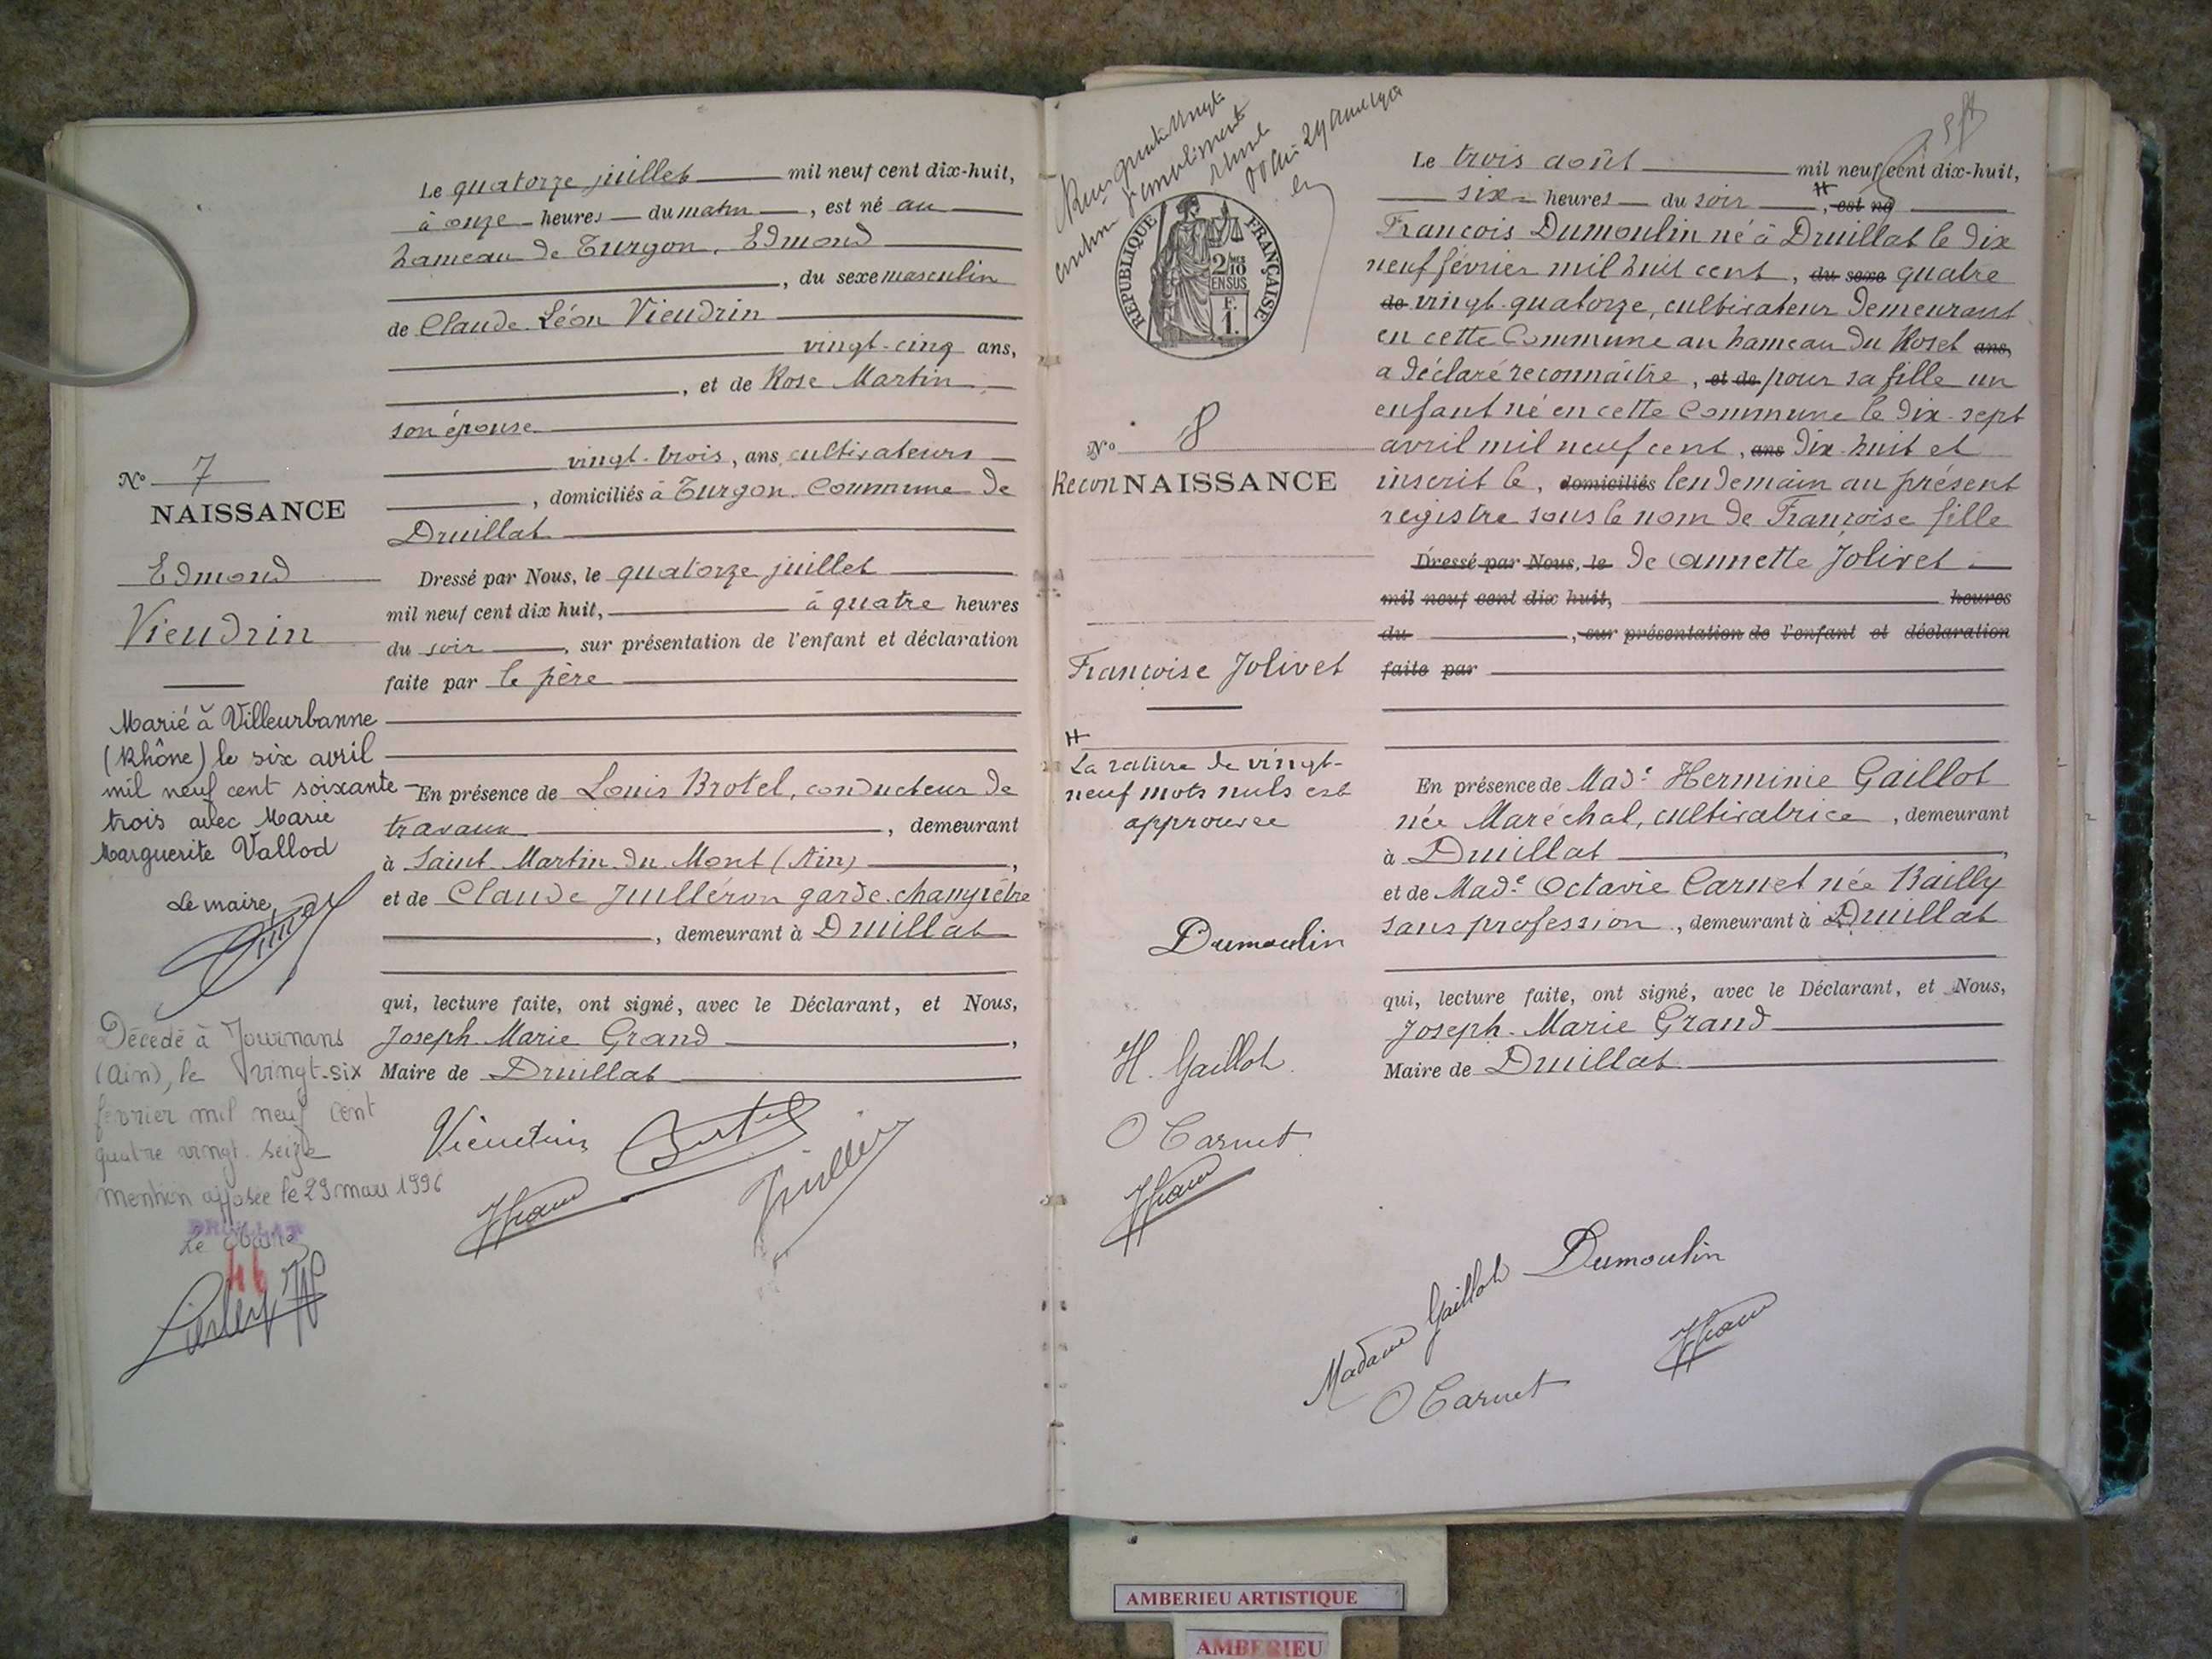 Le quatorze juillet mil neuf cent dix-huit,
à onze heures du matin, est né au
hameau de Turgon, Edmond
, du sexe masculin
de Claude Léon Vieudrin
vingt-cinq ans,
, et de Rose Martin
son épouse
vingt-trois, ans, cultivateurs
, domiciliés à Turgon. Commune de
Druillat
Dressé par Nous, le quatorze juillet
mil neuf cent dix huit, à quatre heures
du soir, sur présentation de l'enfant et déclaration
faite par le père
En présence de Louis Brotel, conducteur de
travaux, demeurant
à Saint Martin du Mont (Ain),
et de Claude Juilléron garde-champêtre
, demeurant à Druillat
qui, lecture faite, ont signé, avec le Déclarant, et Nous,
Joseph Marie Grand,
Maire de Druillat
N° 7
NAISSANCE
Edmond
Vieudrin
Marié à Villeurbanne
(Rhône) le six avril
mil neuf cent soixante
trois avec Marie
Marguerite Vallod
Le maire,
Décédé à Journans
(Ain), le vingt-six
février mil neuf cent
quatre vingt seize
mention apposée le 29 mars 1996
DRUILLAT
Le Maire
Vieudrin
RÉPUBLIQUE FRANÇAISE
2/10
EN SUS
F.
1.
N° 8
ReconNAISSANCE
Françoise Jolivet
H
La rature de vingt-
neuf mots nuls est
approuvée
Dumoulin
H. Gaillot
O Carnet
Le trois août mil neuf cent dix-huit,
six heures du soir H, est né
François Dumoulin né à Druillat le dix
neuf février mil huit cent, du sexe quatre
de vingt-quatorze, cultivateur demeurant
en cette Commune au hameau du Roset ans,
a déclaré reconnaître, et de pour sa fille un
enfant né en cette Commune le dix-sept
avril mil neuf cent, ans dix-huit et
inscrit le, domiciliés lendemain au présent
registre sous le nom de Françoise fille
Dressé par Nous, le de Annette Jolivet
mil neuf cent dix huit, heures
du, sur présentation de l'enfant et déclaration
faite par
En présence de Made Herminie Gaillot
née Maréchal, cultivatrice, demeurant
à Druillat,
et de Made Octavie Carnet née Bailly
sans profession, demeurant à Druillat
qui, lecture faite, ont signé, avec le Déclarant, et Nous,
Joseph Marie Grand
Maire de Druillat
Dumoulin
Madame Gaillot
O Carnet
AMBERIEU ARTISTIQUE
AMBERIEU